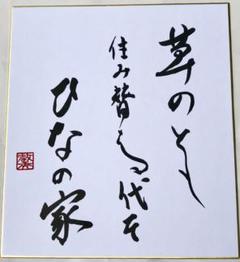 草のとも
住み替はる代そ
ひなの家